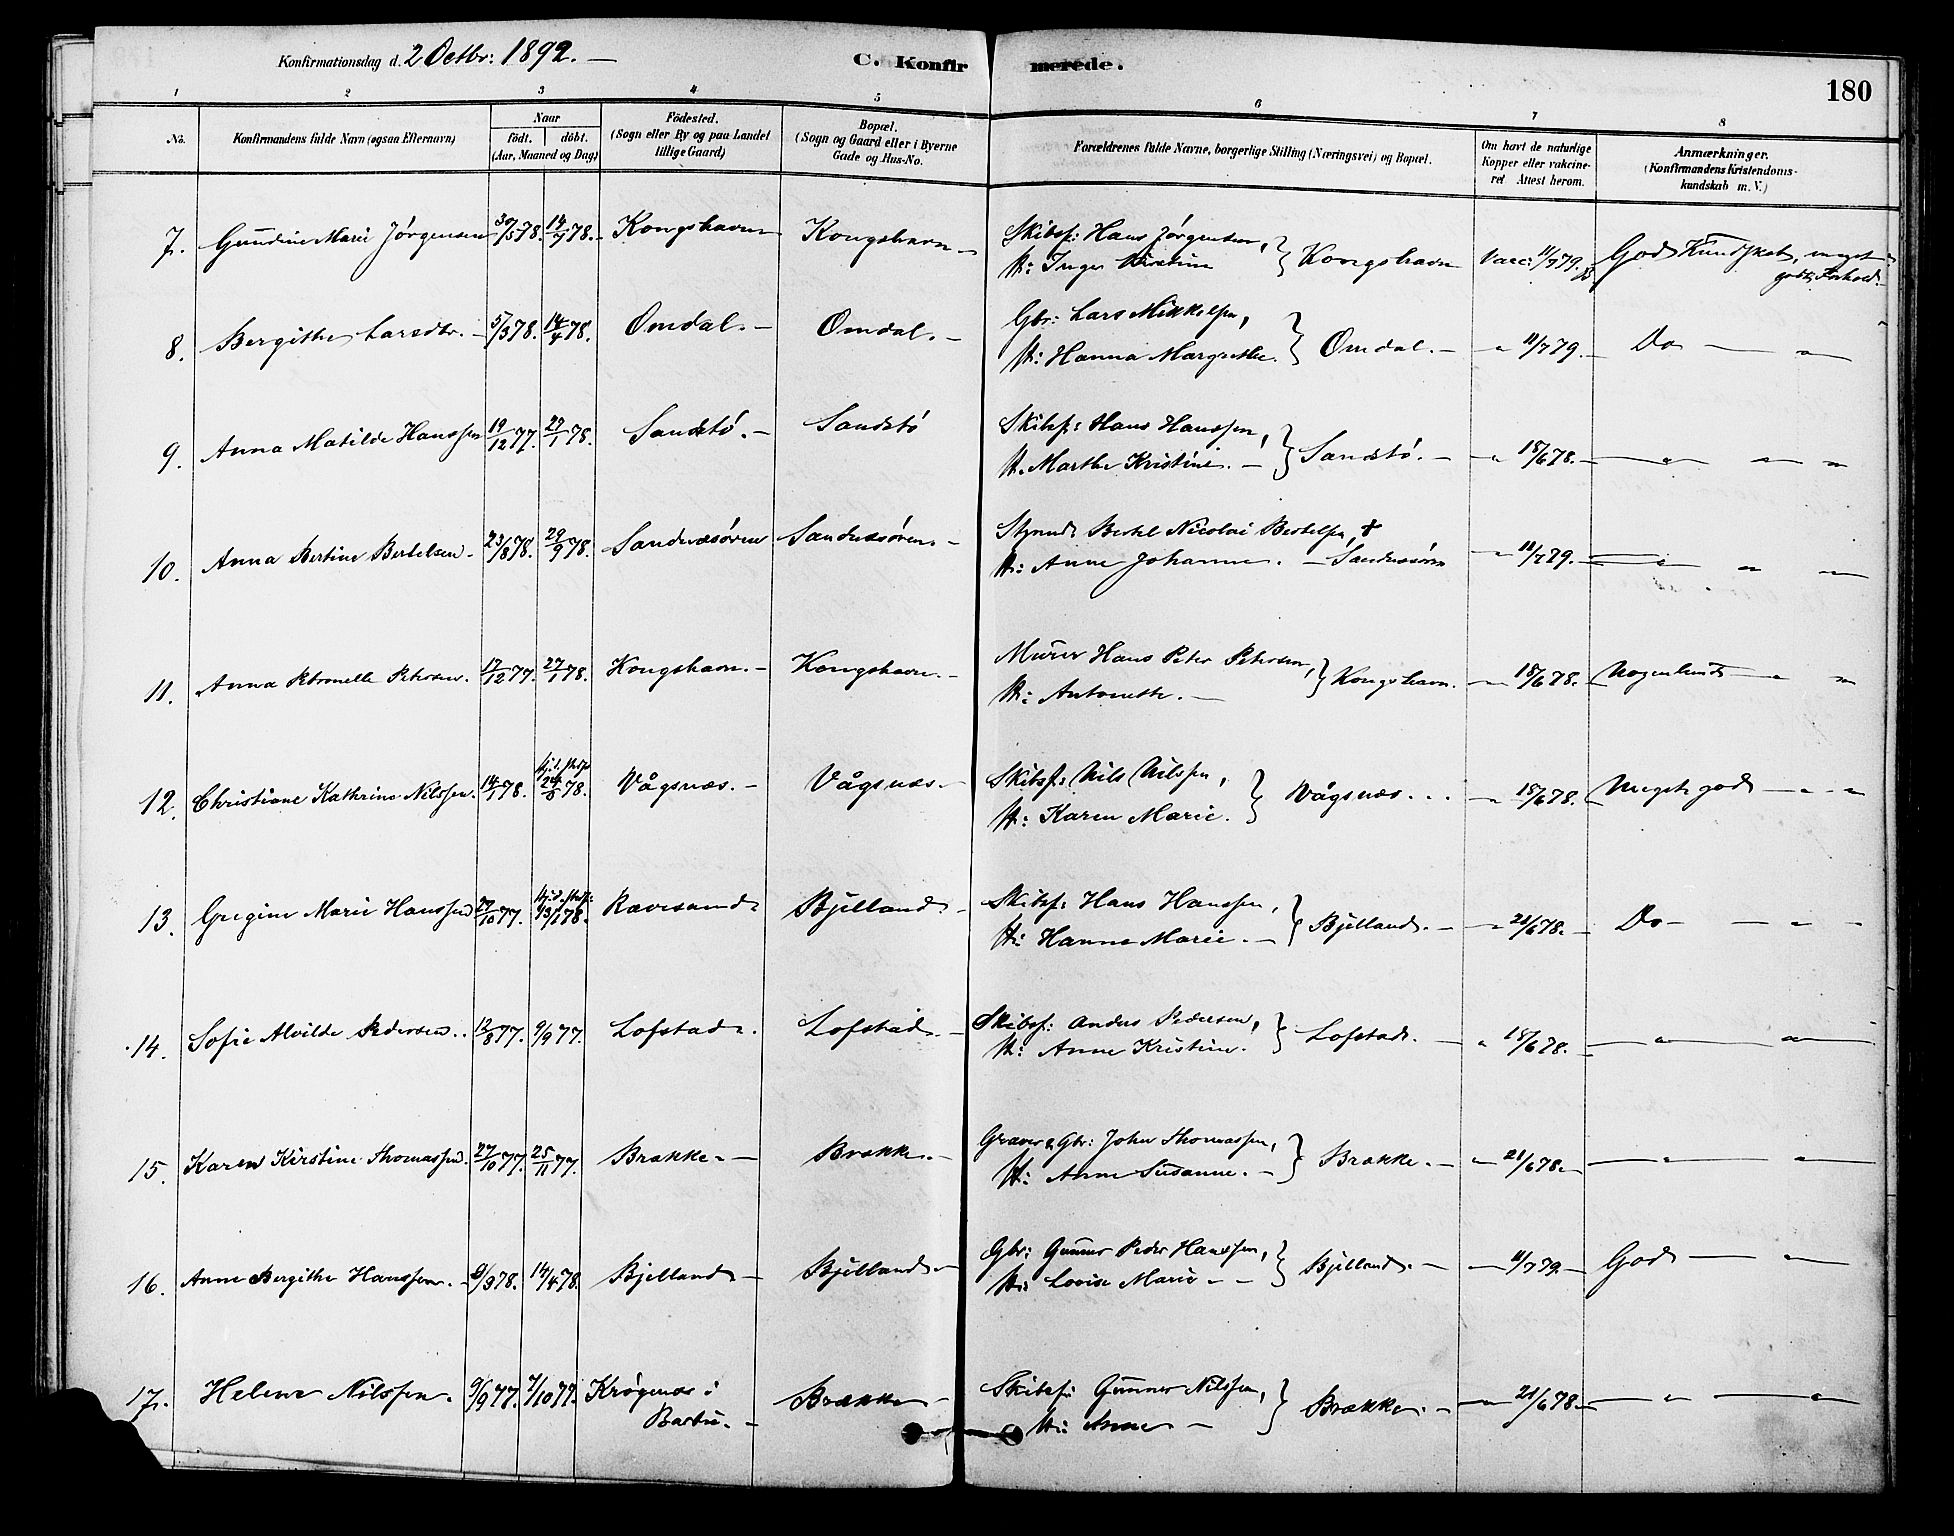 Konfirmationsdag d. 2 Octbr: 1892. —
C. Konfirmerede.
180
1 2 3 4 5 6 7 8
No. Konfirmandens fulde Navn (ogsaa Efternavn)
Naar
födt. döbt.
(Aar, Maaned og Dag)
Födested.
(Sogn eller By og paa Landet
tillige Gaard)
Bopæl.
(Sogn og Gaard eller i Byerne
Gade og Hus-No.
Forældrenes fulde Navne, borgerlige Stilling (Næringsvei) og Bopæl.
Om havt de naturlige
Kopper eller vakcine-
ret Attest herom.
Anmærkninger.
(Konfirmandens Kristendoms-
kundskab m. V.)
7. Gundine Marie Jörgensen 30/5 78. 14/7 78. Kongshavn Kongshavn — Skibsf: Hans Jörgensen, } Kongshavn Vacc: 11/7 79. God Kundskab, meget
H: Inger Kirstine godt Forhold.
8. Bergithe Larsdtr. — 5/3 78. 14/4 78. Omdal. — Omdal. — Gbr: Lars Mikkelsen, } Omdal. — " 11/7 79. — Do — "
H: Hanna Margrethe.
9. Anna Matilde Hanssen 19/12 77. 27/1 78. Sandstö. — Sandstö Skibsf: Hans Hanssen, } Sandstö. — " 18/6 78. — " " "
H. Marthe Kristine. —
10. Anna Bertine Bertelsen. 23/8 78. 29/9 78. Sandvasören Sandvasören. — Styrmd. Bertel Nicolai Bertelsen, †
H: Anne Johanne. — Sandvasören — " 11/7 79. — " " "
11. Anna Petronelle Petersen. 17/12 77. 27/1 78. Kongshavn. — Kongshavn. — Murer Hans Peter Petersen, } Kongshavn. — " 18/6 78. — Nogenlunde — " "
H: Antonette. —
12. Christiane Kathrine Nilssen. 14/1 78. 78. Vågsnæs. — Vågsnæs. — Skibsf: Nils Nilssen, } Vågsnæs. . . — " 18/6 78. Meget god — " — "
H: Karen Marie.
13. Gregine Marie Hanssen 27/10 77. 78. Ravesand. Bjelland. — Skibsf: Hans Hanssen, } Bjelland. — " 21/6 78. — Do — " "
H: Hanne Marie. —
14. Sofie Alvilde Pedersen. 12/8 77. 9/9 77. Lofstad. Lofstad. — Skibsf: Anders Pedersen, } Lofstad. — " 18/6 78. — " "
H: Anne Kristine.
15. Karen Kirstine Thomassen. 27/10 77. 25/11 77. Brække. — Brække. — Graver & Gbr: John Thomassen, } Brække. — " 21/6 78. — " "
H: Anne Susanne. —
16. Anne Bergithe Hanssen. — 78. 14/4 78. Bjelland. — Bjelland. — Gbr: Gunner Peder Hanssen, } Bjelland. — " 11/7 79. — God — "
H: Lovise Marie — —
17. Helene Nilssen. 9/9 77. 7/10 77. Krögenæs i Brække — Skibsf: Gunner Nilssen, } Brække. — " 21/6 78. — " — "
Barbu. — H: Anne —